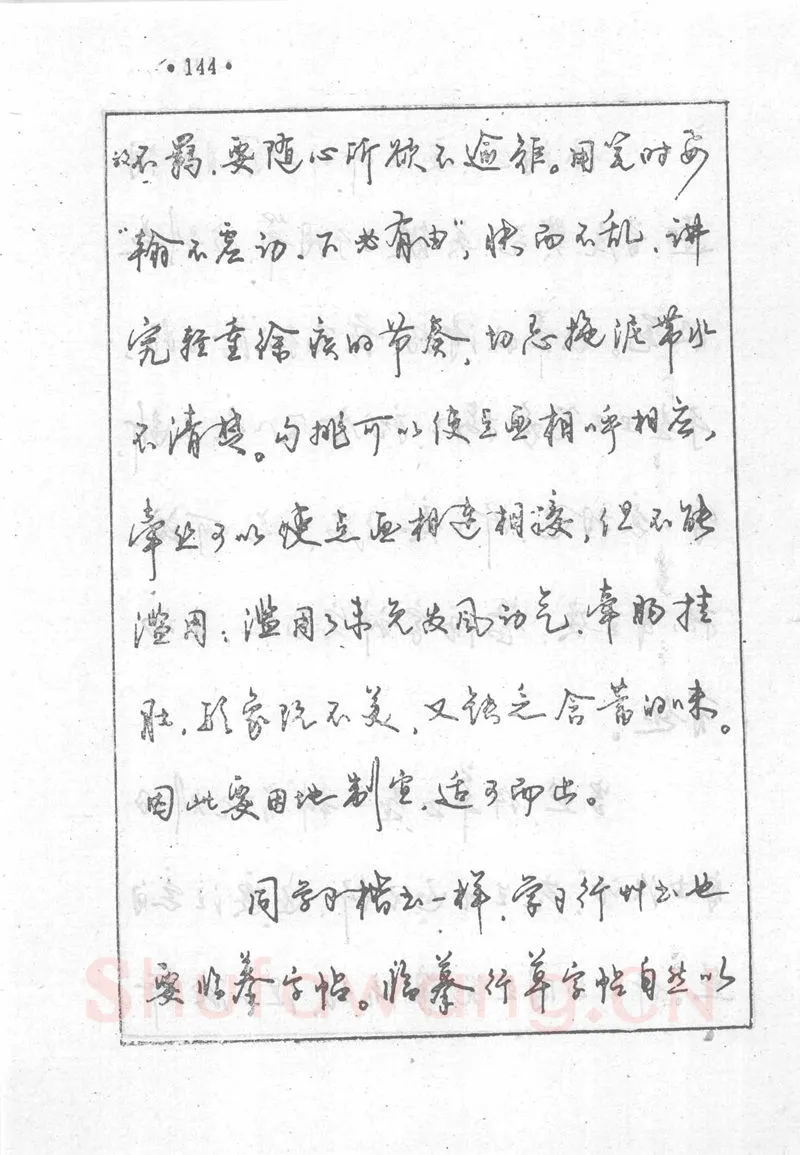 ·144·
放不羁，要随心所欲不逾矩。用笔时要
“翰不虚动，下必有由”，快而不乱，讲
究轻重徐疾的节奏，切忌拖泥带水
不清楚。勾挑可以使点画相呼相应，
牵丝可以使点画相连相接，但不能
滥用；滥用了未免发风动气，牵肠挂
肚，形象既不美，又缺乏含蓄的味。
因此要因地制宜，适可而止。
同学习楷书一样，学习行草书也
要临摹字帖。临摹行草字帖自然以
Shufawang.CN